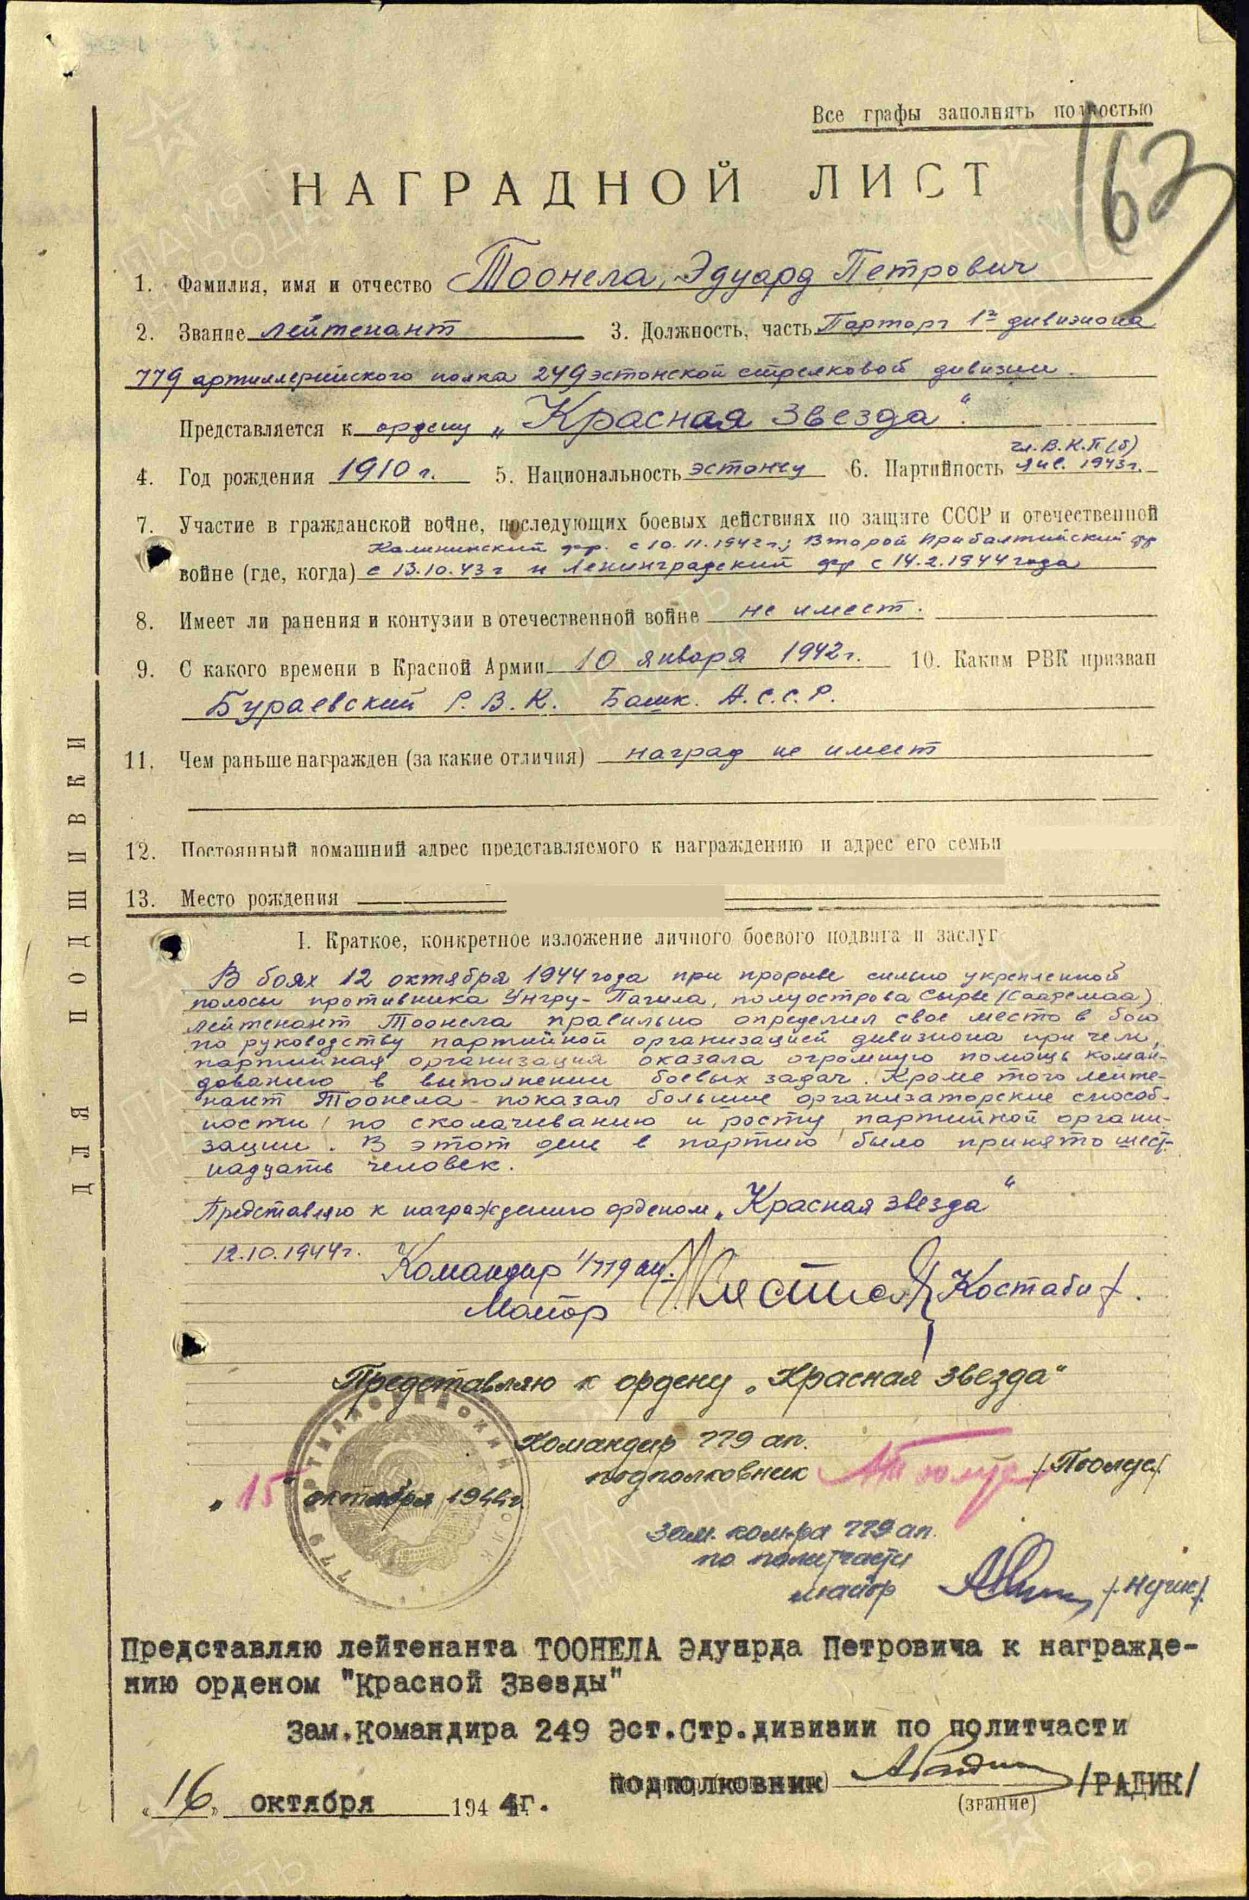 Все графы заполнять полностью
163
НАГРАДНОЙ ЛИСТ
1. Фамилия, имя и отчество Тоонела, Эдуард Петрович
2. Звание лейтенант 3. Должность, часть Парторг 1го дивизиона
779 артиллерийского полка 249 эстонской стрелковой дивизии.
Представляется к ордену „Красная Звезда".
чл. В.К.П(б)
4. Год рождения 1910 г. 5. Национальность эстонец 6. Партийность 1943 г.
7. Участие в гражданской войне, последующих боевых действиях по защите СССР и отечественной
Калининский фр. с 10.11.1942 г.; Второй Прибалтийский фр
войне (где, когда) с 13.10.43 г и Ленинградский фр с 14.2.1944 года
8. Имеет ли ранения и контузии в отечественной войне не имеет.
9. С какого времени в Красной Армии 10 января 1942 г. 10. Каким РВК призван
Бураевский Р.В.К. Башк. А.С.С.Р.
11. Чем раньше награжден (за какие отличия) наград не имеет
12. Постоянный домашний адрес представляемого к награждению и адрес его семьи
13. Место рождения
I. Краткое, конкретное изложение личного боевого подвига и заслуг
В боях 12 октября 1944 года при прорыве сильно укрепленной
полосы противника Унгру-Пагила, полуострова Сырве (Сааремаа)
лейтенант Тоонела правильно определил свое место в бою
по руководству партийной организацией дивизиона при чем,
партийная организация оказала огромную помощь коман-
дованию в выполнении боевых задач. Кроме того лейте-
нант Тоонела - показал большие организаторские способ-
ности по сколачиванию и росту партийной органи-
зации. В этот день в партию было принято шест-
надцать человек.
Представляю к награждению орденом „Красная звезда"
12.10.1944 г. Командир 1/779 ап.
Майор Костаби
Представляю к ордену „Красная звезда"
Командир 779 ап.
подполковник /Поолус/
„15" октября 1944 г.
779 АРТИЛЛЕРИЙСКИЙ ПОЛК
Зам. ком-ра 779 ап.
по политчасти
майор
Представляю лейтенанта ТООНЕЛА Эдуарда Петровича к награжде-
нию орденом "Красной Звезды"
Зам.Командира 249 Эст.Стр.дивизии по политчасти
подполковник /РАДИК/
(звание)
„16" октября 1944г.
ДЛЯ ПОДШИВКИ
ПАМЯТЬ НАРОДА